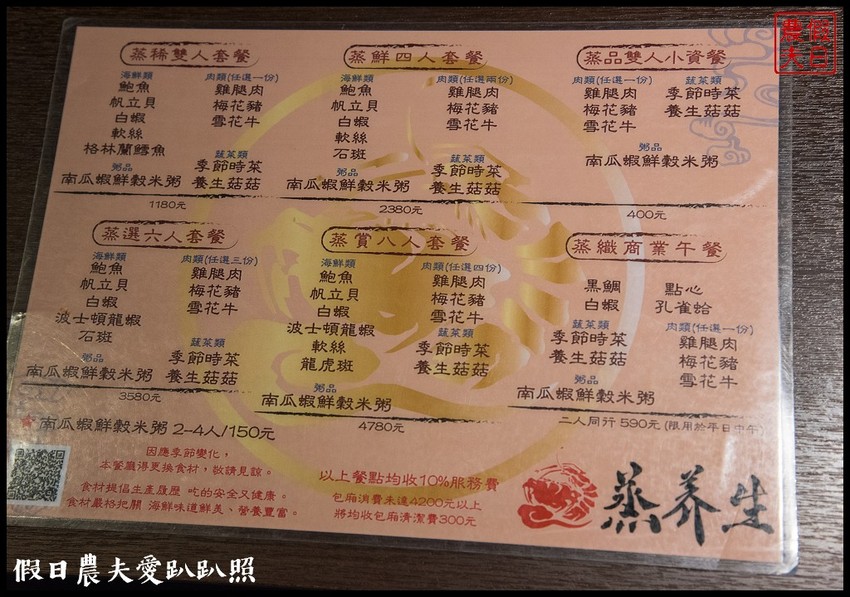 農假
夫日
蒸稀雙人套餐
海鮮類
鮑魚
帆立貝
白蝦
軟絲
格林蘭鱈魚
肉類(任選一份)
雞腿肉
梅花豬
雪花牛
粥品
南瓜蝦鮮穀米粥
蔬菜類
季節時菜
養生菇菇
1180元
蒸鮮四人套餐
海鮮類
鮑魚
帆立貝
白蝦
軟絲
石斑
肉類(任選兩份)
雞腿肉
梅花豬
雪花牛
粥品
南瓜蝦鮮穀米粥
蔬菜類
季節時菜
養生菇菇
2380元
蒸品雙人小資餐
肉類(任選一份)
雞腿肉
梅花豬
雪花牛
蔬菜類
季節時菜
養生菇菇
粥品
南瓜蝦鮮穀米粥
400元
蒸選六人套餐
海鮮類
鮑魚
帆立貝
白蝦
波士頓龍蝦
石斑
肉類(任選三份)
雞腿肉
梅花豬
雪花牛
粥品
南瓜蝦鮮穀米粥
蔬菜類
季節時菜
養生菇菇
3580元
蒸賞八人套餐
海鮮類
鮑魚
帆立貝
白蝦
波士頓龍蝦
軟絲
龍虎斑
肉類(任選四份)
雞腿肉
梅花豬
雪花牛
蔬菜類
季節時菜
養生菇菇
粥品
南瓜蝦鮮穀米粥
4780元
蒸纖商業午餐
黑鯛
白蝦
點心
孔雀蛤
蔬菜類
季節時菜
養生菇菇
肉類(任選一份)
雞腿肉
梅花豬
雪花牛
粥品
南瓜蝦鮮穀米粥
二人同行 590元 (限用於平日中午)
南瓜蝦鮮穀米粥 2-4人/150元
因應季節變化,
本餐廳得更換食材,敬請見諒。
食材提倡生產履歷 吃的安全又健康。
食材嚴格把關 海鮮味道鮮美、營養豐富。
以上餐點均收10%服務費
包廂消費未達4200元以上
將均收包廂清潔費300元
蒸养生
假日農夫愛趴趴照